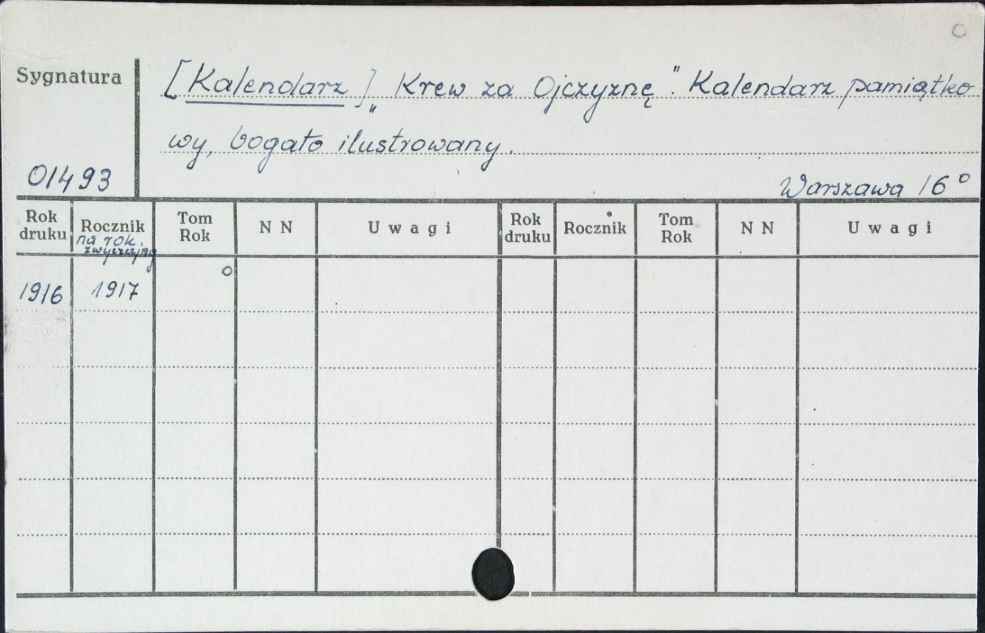 Sygnatura
[Kalendarz] „Krew za Ojczyznę". Kalendarz pamiątko
wy, bogato ilustrowany.
01493
Warszawa 16°
Rok druku Rocznik Tom Rok N N Uwagi Rok druku Rocznik Tom Rok N N Uwagi
na rok zwyczajny
1916 1917